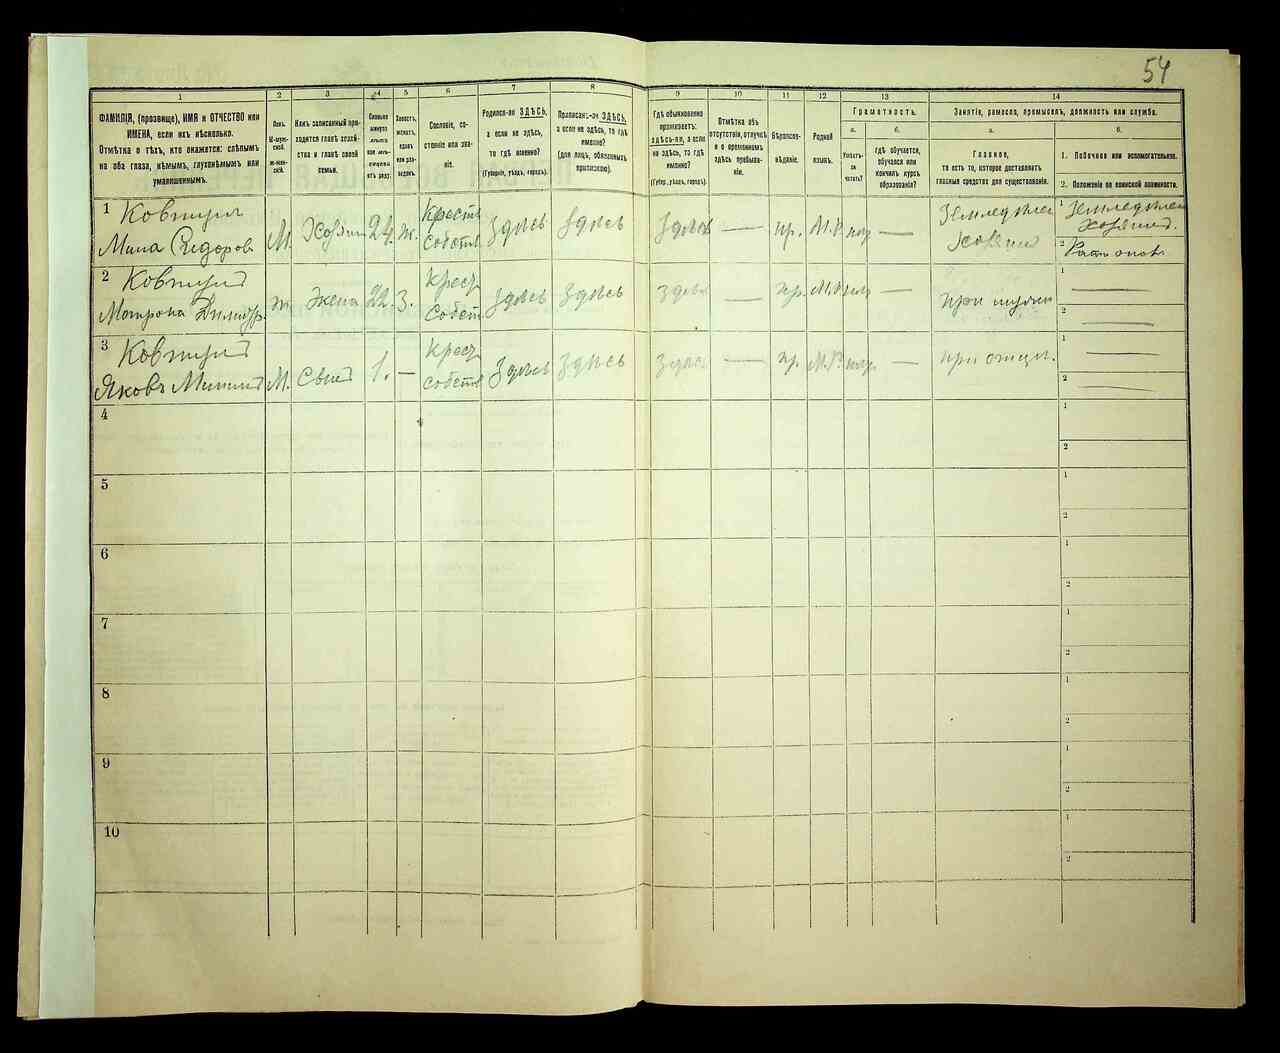 54
1 2 3 4 5 6 7 8 9 10 11 12 13 14
ФАМИЛІЯ, (прозвище), ИМЯ и ОТЧЕСТВО или
ИМЕНА, если ихъ нѣсколько.
Отмѣтка о тѣхъ, кто окажется: слѣпымъ
на оба глаза, нѣмымъ, глухонѣмымъ или
умалишеннымъ.
Полъ.
М-муж-
ской.
Ж-жен-
скій.
Какъ записанный при-
ходится главѣ хозяй-
ства и главѣ своей
семьи.
Сколько
минуло
лѣтъ
или мѣ-
сяцевъ
отъ роду.
Холостъ,
женатъ,
вдовъ
или раз-
веденъ.
Сословіе, со-
стояніе или зва-
ніе.
Родился-ли ЗДѢСЬ,
а если не здѣсь,
то гдѣ именно?
(Губернія, уѣздъ, городъ).
Приписанъ-ли ЗДѢСЬ,
а если не здѣсь, то гдѣ
именно?
(для лицъ, обязанныхъ
припискою).
Гдѣ обыкновенно
проживаетъ:
здѣсь-ли, а если
не здѣсь, то гдѣ
именно?
(Губер., уѣздъ, городъ).
Отмѣтка объ
отсутствіи, отлучкѣ
и о временномъ
здѣсь пребыва-
ніи.
Вѣроиспо-
вѣданіе.
Родной
языкъ.
Грамотность.
а.
Умѣетъ-
ли
читать?
б.
гдѣ обучается,
обучался или
кончилъ курсъ
образованія?
Занятіе, ремесло, промыселъ, должность или служба.
а.
Главное,
то есть то, которое доставляетъ
главныя средства для существованія.
б.
1. Побочное или вспомогательное.
2. Положеніе по воинской повинности.
1 Ковпицій
Мина Сидоровъ М. Хозяинъ 24. ж. Крест. собств. Здѣсь Здѣсь Здѣсь — пр. М.Р. — Земледѣлец хозяинъ
1 Земледѣлец хозяинъ.
2
2 Ковпиций
Мотрона Димитр. ж Жена 22. З. крест. собств. Здѣсь Здѣсь здѣсь — пр. М.Р. — при мужѣ
1 —
2 —
3 Ковпиций
Яковъ Мининъ М. Сынъ 1. — крест. собств. Здѣсь Здѣсь здѣсь — пр. М.Р. — при отцѣ.
1 —
2 —
4 1
2
5 1
2
6 1
2
7 1
2
8 1
2
9 1
2
10 1
2